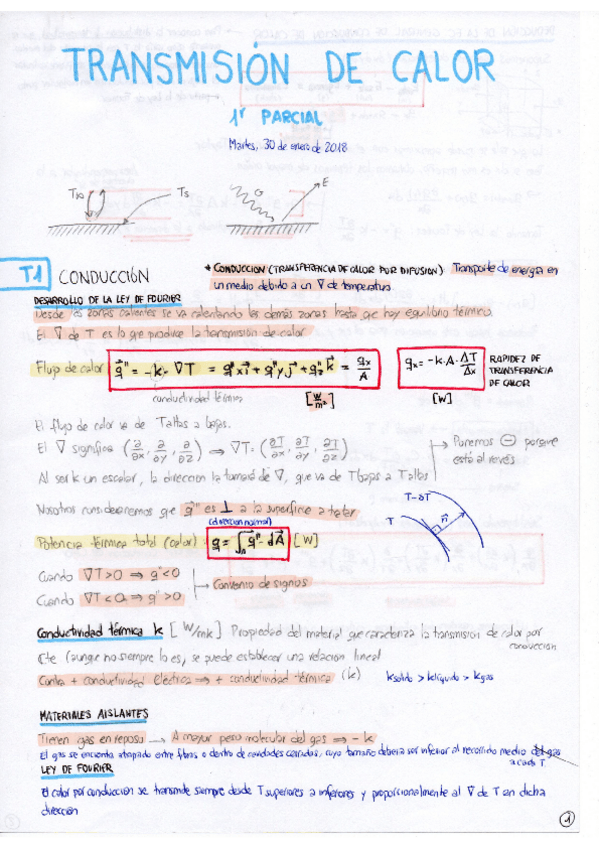 TRANSMISIÓN DE CALOR
1er PARCIAL
Martes, 30 de enero de 2018
T∞ Ts G E
T1 CONDUCCIÓN
* CONDUCCION (TRANSFERENCIA DE CALOR POR DIFUSION) Transporte de energía en
un medio debido a un ∇ de temperatura.
DESARROLLO DE LA LEY DE FOURIER
Desde las zonas calientes se va calentando los demás zonas hasta que hay equilibrio térmico.
El ∇ de T es lo que produce la transmisión de calor
Flujo de calor q⃗" = -k · ∇T = q⃗"x i⃗ + q⃗"y j⃗ + q⃗"z k⃗ = qx/A
qx = -k·A·ΔT/Δx
RAPIDEZ DE
TRANSFERENCIA
DE CALOR
conductividad térmica [W/m²] [W]
El flujo de calor va de T altas a bajas.
El ∇ significa (∂/∂x, ∂/∂y, ∂/∂z) ⇒ ∇T: (∂T/∂x, ∂T/∂y, ∂T/∂z) → Ponemos ⊖ porque
está al revés
Al ser k un escalar, la direccion la tomará de ∇, que va de T bajas a T altas
Nosotros consideraremos que q⃗" es ⊥ a la superficie a tratar
(direccion normal)
T-∂T
T n⃗
Potencia térmica total (calor) q = ∫A q⃗"·dA⃗ [W]
Cuando ∇T>0 ⇒ q"<0
→ Convenio de signos
Cuando ∇T<0 ⇒ q">0
Conductividad térmica k [W/mk] Propiedad del material que caracteriza la transmision de calor por
conduccion
Cte (aunque no siempre lo es, se puede establecer una relacion lineal
+ conductividad eléctrica ⇒ + conductividad térmica (k) ksolido > klíquido > kgas
MATERIALES AISLANTES
Tienen gas en reposo → A mayor peso molecular del gas ⇒ -k
El gas se encuentra atrapado entre fibras o dentro de cavidades cerradas, cuyo tamaño debera ser inferior al recorrido medio del gas
a cada T.
LEY DE FOURIER
El calor por conduccion se transmite siempre desde T superiores a inferiores y proporcionalmente al ∇ de T en dicha
direccion
1